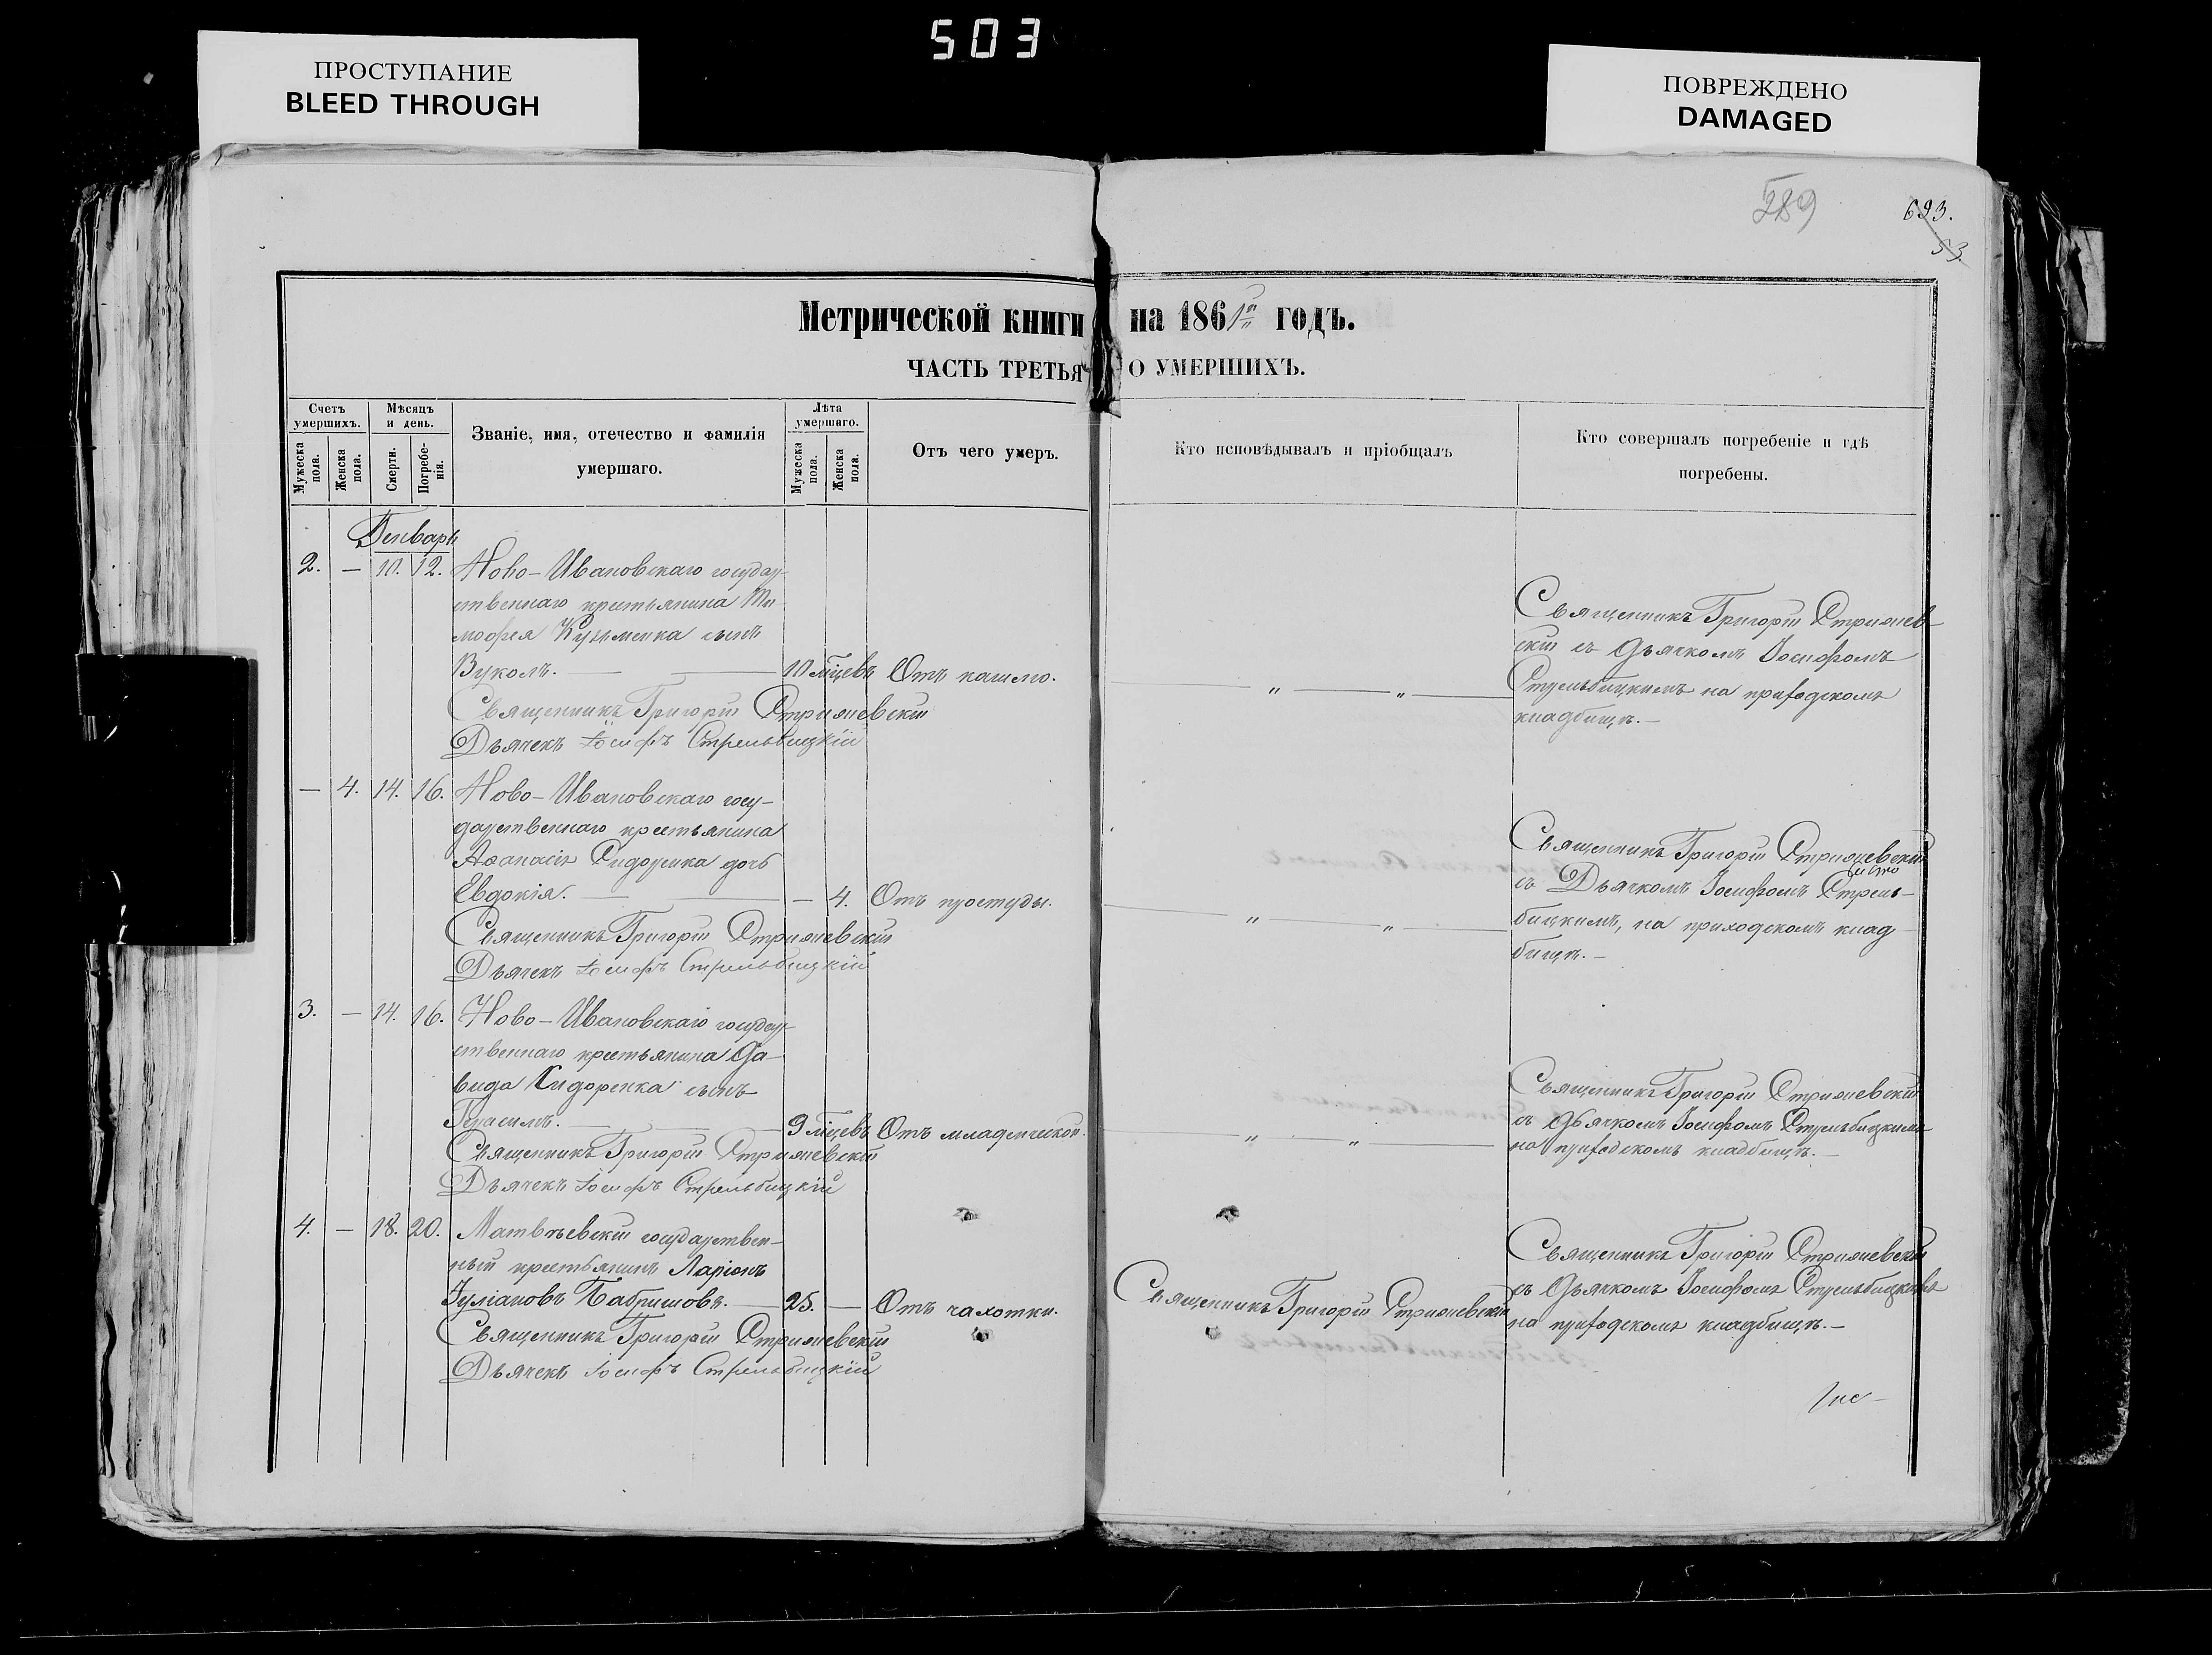 503
ПРОСТУПАНИЕ
BLEED THROUGH
ПОВРЕЖДЕНО
DAMAGED
289
693.
53
Метрической книги на 1861го годъ.
ЧАСТЬ ТРЕТЬЯ О УМЕРШИХЪ.
Счетъ умершихъ.
Мужеска пола.
Женска пола.
Мѣсяцъ и день.
Смерти.
Погребенія.
Званіе, имя, отечество и фамилія
умершаго.
Лѣта умершаго.
Мужеска пола.
Женска пола.
Отъ чего умеръ.
Кто исповѣдывалъ и пріобщалъ
Кто совершалъ погребеніе и гдѣ
погребены.
Генварь
2. — 10. 12. Ново-Ивановскаго государ-
ственнаго крестьянина Ти
мофея Кузьменка сынъ
Вуколъ. — — 10 мцевъ Отъ кашлю.
Священникъ Григорій Стрижевскій
Дьячекъ Іосифъ Стрельбицкій
— „ — „ —
Священникъ Григорій Стрижев
скій съ дьячкомъ Іосифомъ
Стрельбицкимъ на приходскомъ
кладбищѣ. —
— 4. 14. 16. Ново-Ивановскаго госу-
дарственнаго крестьянина
Аѳанасія Сидоренка дочь
Евдокія. — — — 4. Отъ простуды.
Священникъ Григорій Стрижевскій
Дьячекъ Іосифъ Стрельбицкій
— „ — „ —
Священникъ Григорій Стрижевскій
съ Дьячкомъ Іосифомъ Стрель-
бицкимъ, на приходскомъ клад
бищѣ. —
3. — 14. 16. Ново-Ивановскаго государ-
ственнаго крестьянина Да-
вида Сидоренка сынъ
Герасимъ. — — 9 мцевъ Отъ младенческой.
Священникъ Григорій Стрижевскій
Дьячекъ Іосифъ Стрельбицкій
— „ — „ —
Священникъ Григорій Стрижевскій
съ дьячкомъ Іосифомъ Стрельбицкимъ
на приходскомъ кладбищѣ. —
4. — 18. 20. Матвѣевскій государствен-
ный крестьянинъ Ларіонъ
Іуліановъ — 25. — Отъ чахотки.
Священникъ Григорій Стрижевскій
Дьячекъ Іосифъ Стрельбицкій
Священникъ Григорій Стрижевскій
Священникъ Григорій Стрижевскій
съ дьячкомъ Іосифомъ Стрельбицкимъ
на приходскомъ кладбищѣ. —